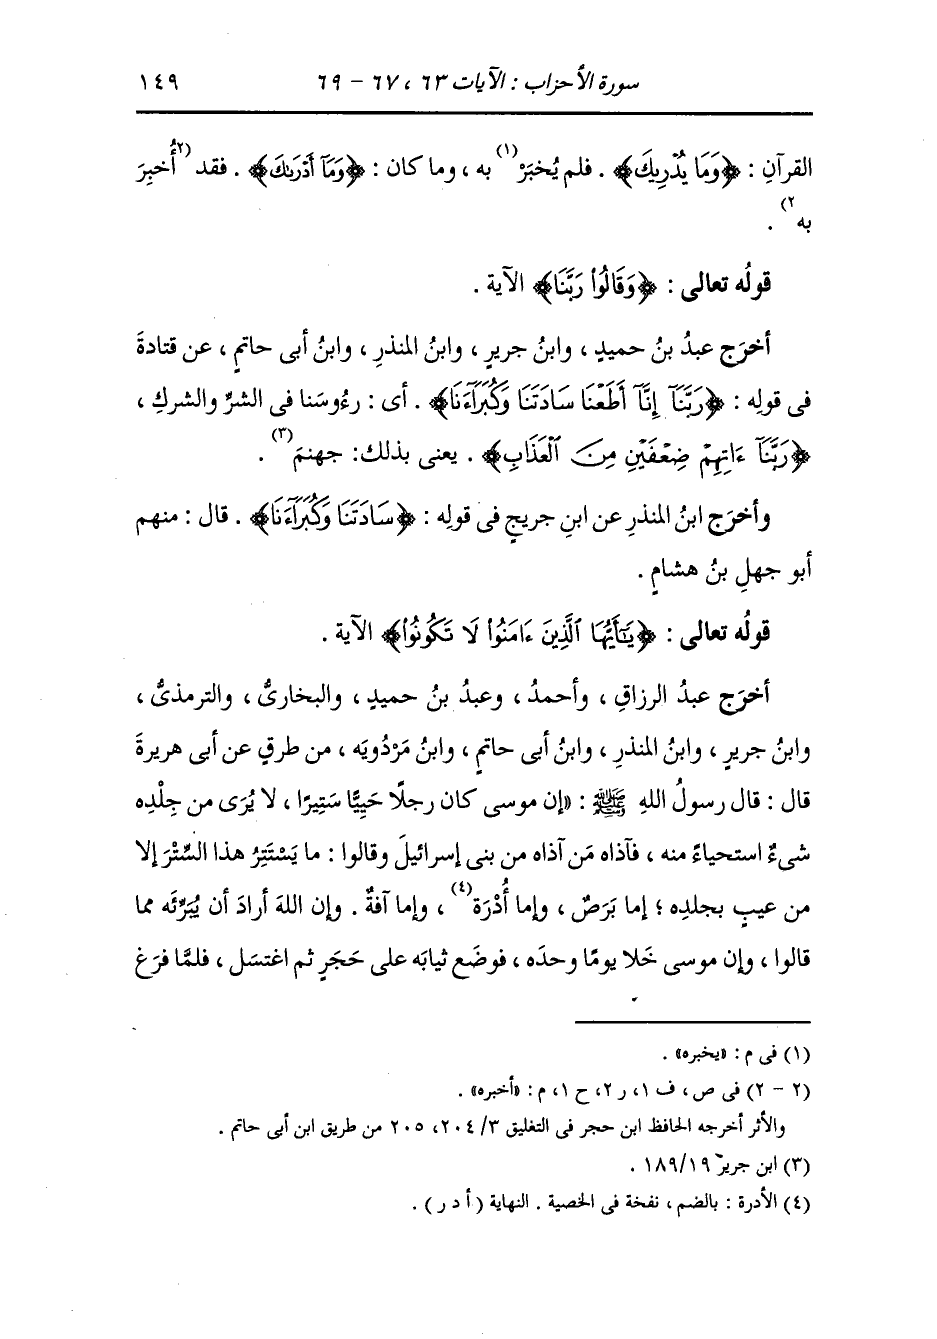 سورة الأحزاب : الآيات ٦٣ ، ٦٧ - ٦٩ ١٤٩
القرآنِ : ﴿وَمَا يُدْرِيكَ﴾ . فلم يُخبَرْ(١) به ، وما كان : ﴿وَمَآ أَدْرَىٰكَ﴾ . فقد (٢أُخبِرَ
به٢) .
قولُه تعالى : ﴿وَقَالُوا۟ رَبَّنَا﴾ الآية .
أخرَج عبدُ بنُ حميدٍ ، وابنُ جريرٍ ، وابنُ المنذرِ ، وابنُ أبى حاتمٍ ، عن قتادةَ
فى قولِه : ﴿رَبَّنَآ إِنَّآ أَطَعْنَا سَادَتَنَا وَكُبَرَآءَنَا﴾ . أى : رءُوسَنا فى الشرِّ والشركِ ،
﴿رَبَّنَآ ءَاتِهِمْ ضِعْفَيْنِ مِنَ ٱلْعَذَابِ﴾ . يعنى بذلك: جهنمَ(٣) .
وأخرَج ابنُ المنذرِ عن ابنِ جريجٍ فى قولِه : ﴿سَادَتَنَا وَكُبَرَآءَنَا﴾ . قال : منهم
أبو جهلِ بنُ هشامٍ .
قولُه تعالى : ﴿يَٰٓأَيُّهَا ٱلَّذِينَ ءَامَنُوا۟ لَا تَكُونُوا۟﴾ الآية .
أخرَج عبدُ الرزاقِ ، وأحمدُ ، وعبدُ بنُ حميدٍ ، والبخارىُّ ، والترمذىُّ ،
وابنُ جريرٍ ، وابنُ المنذرِ ، وابنُ أبى حاتمٍ ، وابنُ مَرْدُويَه ، من طرقٍ عن أبى هريرةَ
قال : قال رسولُ اللهِ ﷺ : «إن موسى كان رجلًا حَيِيًّا سَتِيرًا ، لا يُرَى من جِلْدِه
شىءٌ استحياءً منه ، فآذاه مَن آذاه من بنى إسرائيلَ وقالوا : ما يَسْتَتِرُ هذا السِّتْرَ إلا
من عيبٍ بجلدِه ؛ إما بَرَصٌ ، وإما أُدْرَة(٤) ، وإما آفةٌ . وإن اللهَ أرادَ أن يُبَرِّئَه مما
قالوا ، وإن موسى خَلا يومًا وحدَه ، فوضَع ثيابَه على حَجَرٍ ثم اغتسَل ، فلمَّا فرَغ
(١) فى م : «يخبره» .
(٢ - ٢) فى ص ، ف ١، ر ٢، ح ١، م : «أخبره» .
والأثر أخرجه الحافظ ابن حجر فى التغليق ٣/ ٢٠٤، ٢٠٥ من طريق ابن أبى حاتم .
(٣) ابن جرير ١٨٩/١٩ .
(٤) الأدرة : بالضم ، نفخة فى الخصية . النهاية ( أ د ر ) .